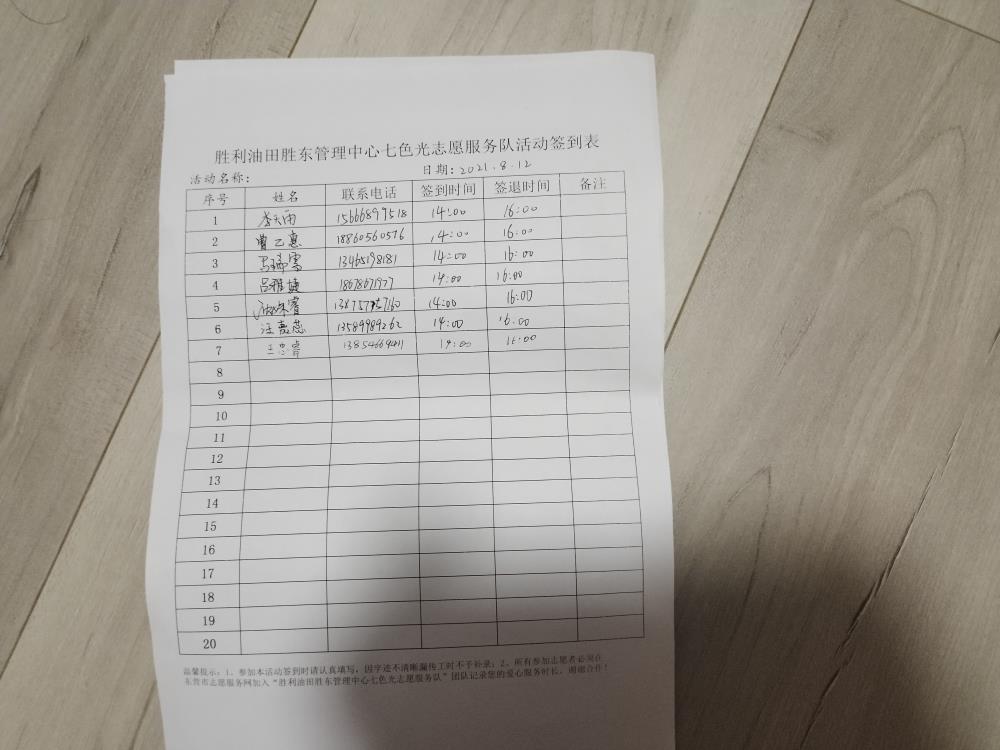 胜利油田胜东管理中心七色光志愿服务队活动签到表
活动名称: 日期: 2021.8.12
序号 姓名 联系电话 签到时间 签退时间 备注
1 李天雨 15666899518 14:00 16:00
2 曹乙惠 18860560576 14:00 16:00
3 马瑞雪 13465198181 14:00 16:00
4 吕雅婕 18678671977 14:00 16:00
5 14:00 16:00
6 汪嘉蕊 13589989262 14:00 16:00
7 13854669411 14:00 16:00
8
9
10
11
12
13
14
15
16
17
18
19
20
温馨提示: 1、参加本活动签到时请认真填写, 因字迹不清晰漏传工时不予补录; 2、所有参加志愿者必须在
东营市志愿服务网加入“胜利油田胜东管理中心七色光志愿服务队”团队记录您的爱心服务时长。谢谢合作!